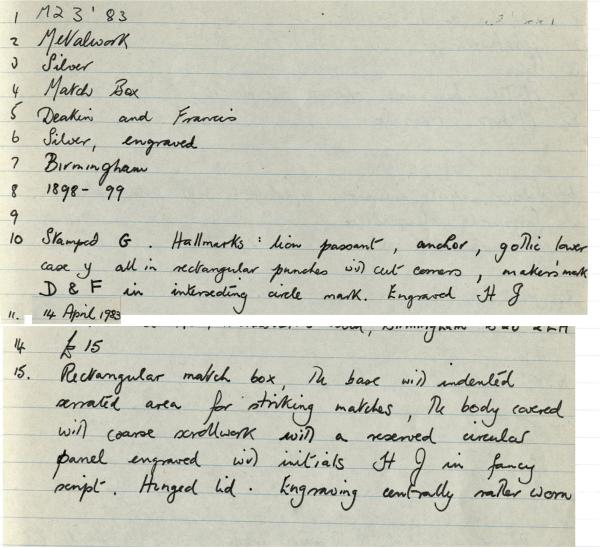 1 M23'83
2 Metalwork
3 Silver
4 Match Box
5 Deakin and Francis
6 Silver, engraved
7 Birmingham
8 1898-99
9
10 Stamped G. Hallmarks: lion passant, anchor, gothic lower
case y all in rectangular punches with cut corners, makers mark
D & F in intersecting circle mark. Engraved H J
11. 14 April 1983
Birmingham
14 £15
15. Rectangular match box, The base with indented
serrated area for striking matches, The body covered
with coarse scrollwork with a reserved circular
panel engraved with initials H J in fancy
script. Hinged lid. Engraving centrally rather worn